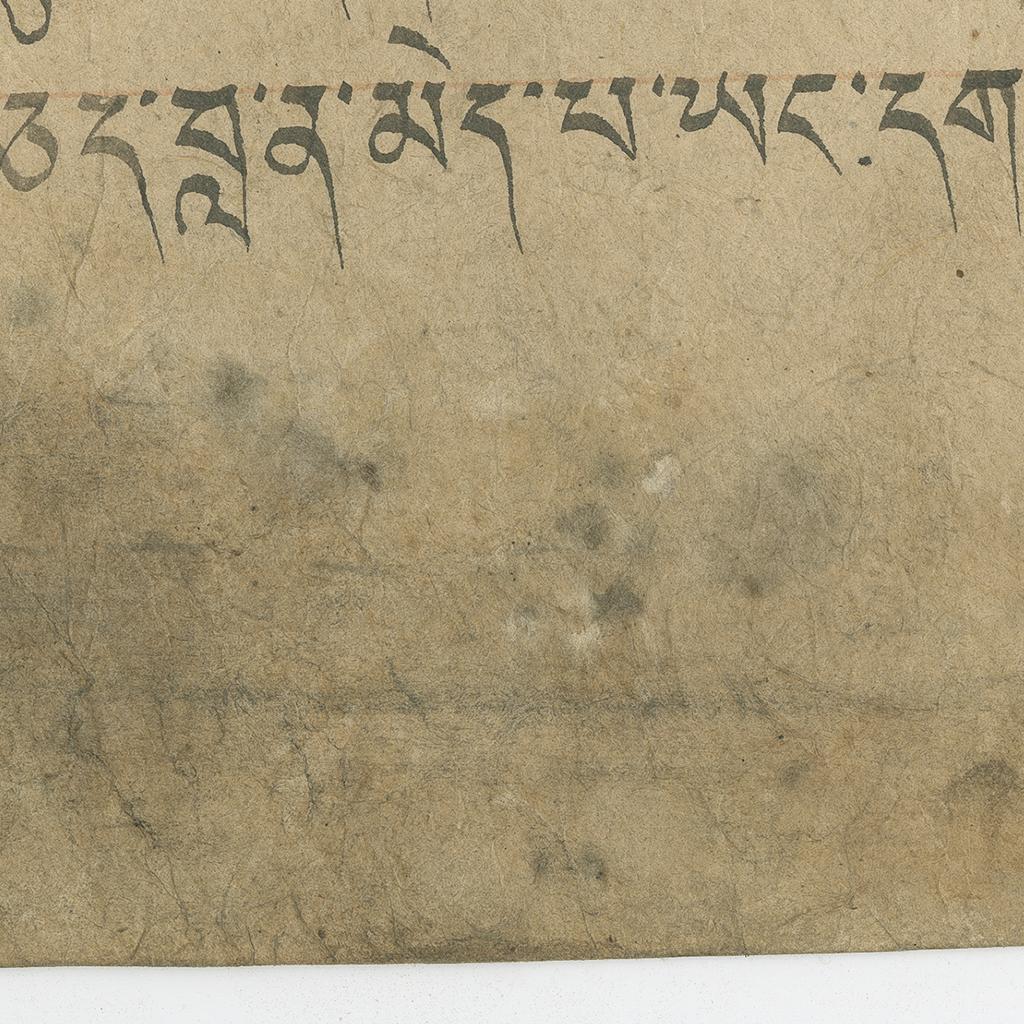 ཅད་བླ་ན་མེད་པ་ཡང་དག